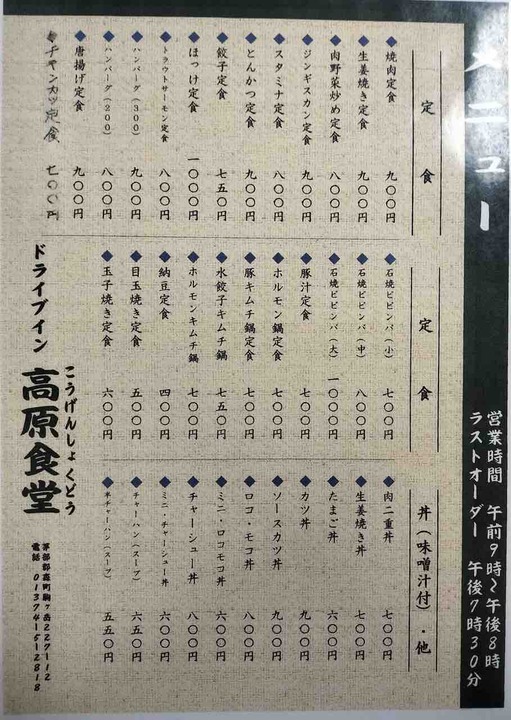 メニュー
営業時間 午前9時～午後8時
ラストオーダー 午後7時30分
定食
焼肉定食 九〇〇円
生姜焼き定食 九〇〇円
肉野菜炒め定食 八〇〇円
ジンギスカン定食 九〇〇円
スタミナ定食 八〇〇円
とんかつ定食 九〇〇円
餃子定食 七五〇円
ほっけ定食 一〇〇〇円
トラウトサーモン定食 八〇〇円
ハンバーグ(300) 九〇〇円
ハンバーグ(200) 八〇〇円
唐揚げ定食 九〇〇円
チキンカツ定食 七〇〇円
定食
石焼ビビンバ(小) 七〇〇円
石焼ビビンバ(中) 八〇〇円
石焼ビビンバ(大) 一〇〇〇円
豚汁定食 七〇〇円
ホルモン鍋定食 七〇〇円
豚キムチ鍋定食 七〇〇円
水餃子キムチ鍋 七五〇円
ホルモンキムチ鍋 七〇〇円
納豆定食 四〇〇円
目玉焼き定食 五〇〇円
玉子焼き定食 六〇〇円
丼(味噌汁付)・他
肉二重丼 七〇〇円
生姜焼き丼 七〇〇円
たまご丼 六〇〇円
カツ丼 九〇〇円
ソースカツ丼 九〇〇円
ロコ・モコ丼 八〇〇円
ミニ・ロコモコ丼 六〇〇円
チャーシュー丼 八〇〇円
ミニ・チャーシュー丼 六〇〇円
チャーハン(スープ) 六五〇円
半チャーハン(スープ) 五五〇円
ドライブイン
こうげんしょくどう
高原食堂
茅部郡森町駒ヶ岳227-112
電話 01374-5-2818